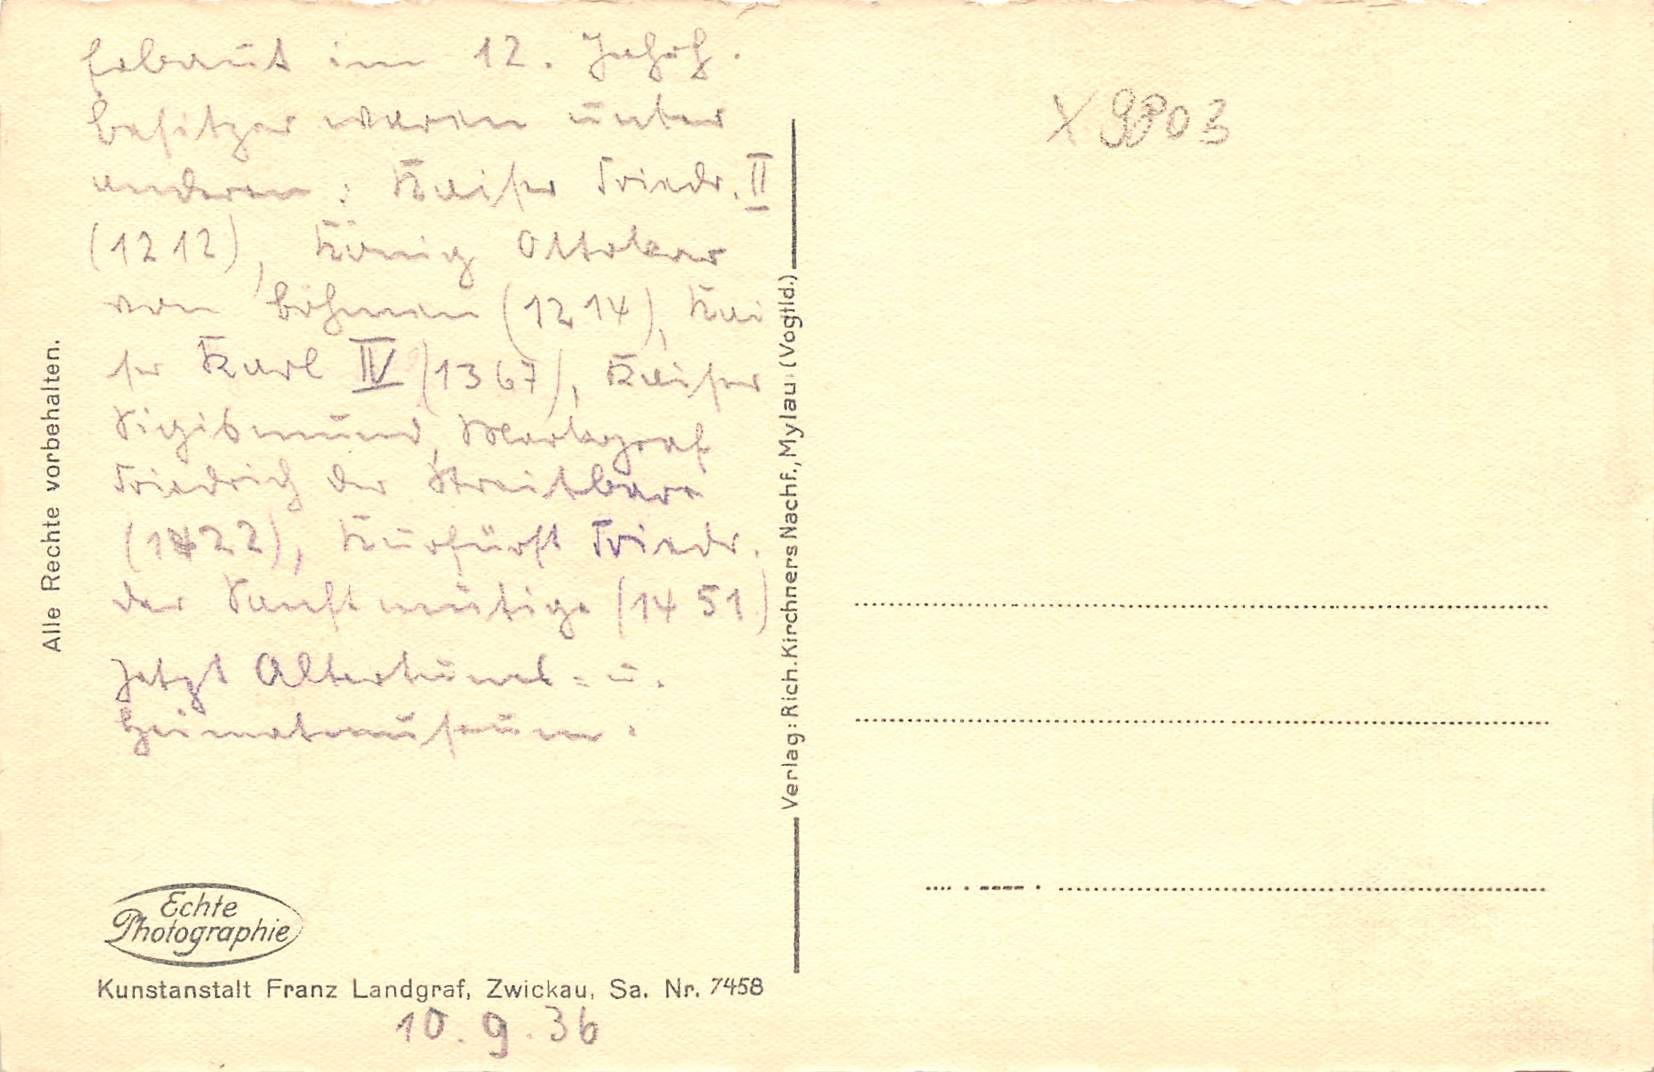 Erbaut im 12. Jahrh.
besitzer waren unter
anderen: Kaiser Friedr. II
(1212), König Ottokar
von böhmen (1214), Kai
ser Karl IV (1367), Kaiser
Sigismund, Markgraf
Friedrich der Streitbare
(1422), Kurfürst Friedr.
der Sanftmütige (1451)
Jetzt Altertums- u.
Heimatmuseum.
Alle Rechte vorbehalten.
Echte
Photographie
Kunstanstalt Franz Landgraf, Zwickau, Sa. Nr. 7458
10.9.36
Verlag: Rich. Kirchners Nachf., Mylau (Vogtld.)
X 9803